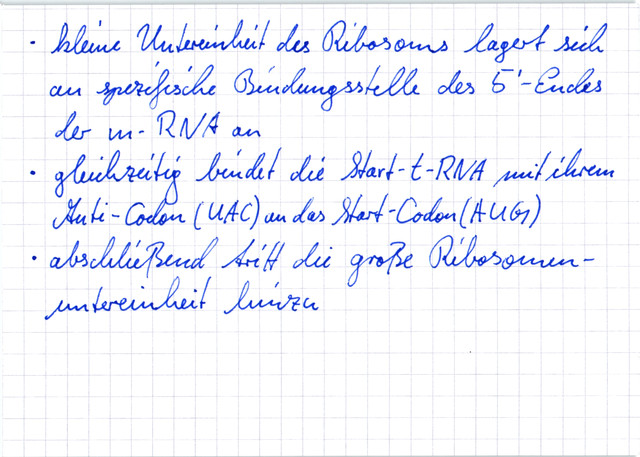 · kleine Untereinheit des Ribosoms lagert sich
an spezifische Bindungsstelle des 5'-Endes
der m-RNA an
· gleichzeitig bindet die Start-t-RNA mit ihrem
Anti-Codon (UAC) an das Start-Codon (AUG)
· abschließend tritt die große Ribosomen-
untereinheit hinzu